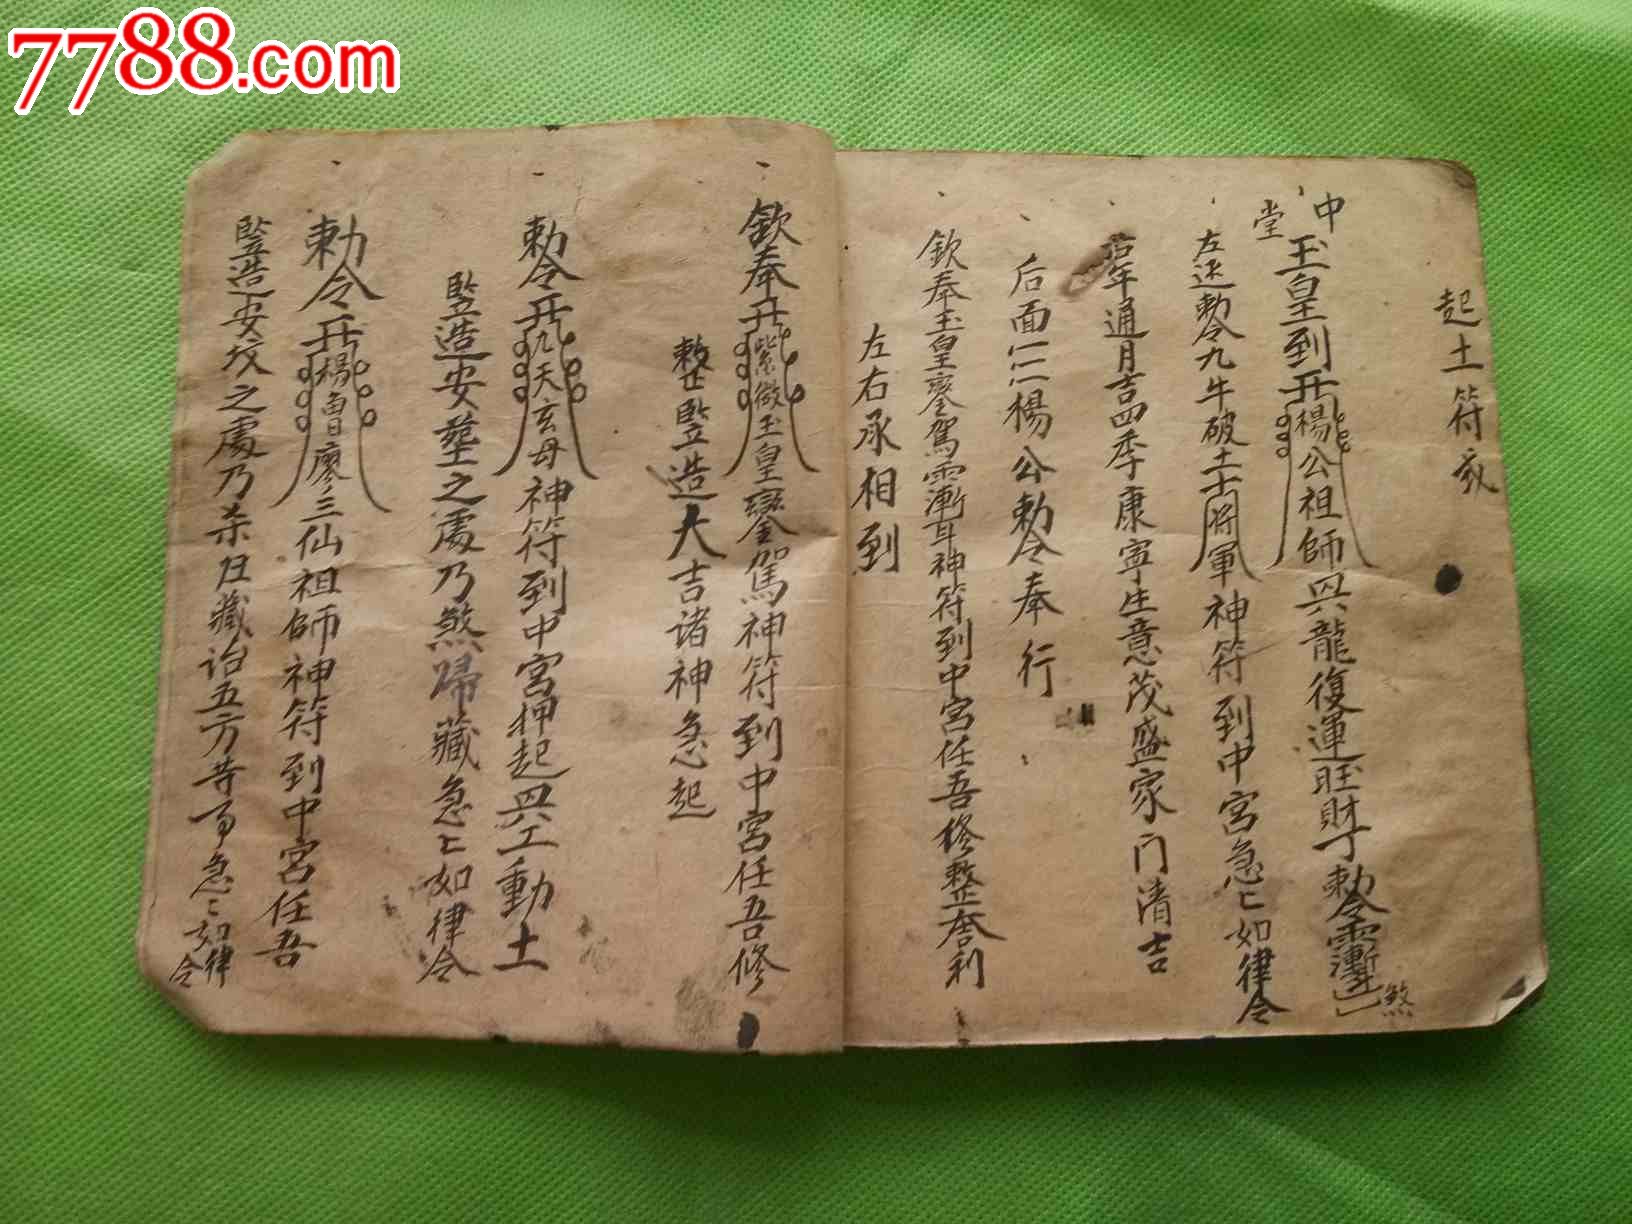 7788.com
起土符式
中堂
玉皇到 楊公祖師興龍復運旺財丁勅令 煞
左送勅令九牛破土 將軍神符到中宮急匕如律令
右年通月吉四季康寧生意茂盛家门清吉
后面 楊公勅令奉行
钦奉玉皇鑾駕 神符到中宮任吾修整 利
左右承相到
钦奉 紫微玉皇鑾駕神符到中宮任吾修
整竪造大吉诸神急起
勅令 九天玄母神符到中宮押起興工動土
竪造安葬之處乃煞歸藏急匕如律令
勅令 楊曾廖三仙祖師神符到中宮任吾
竪造安坟之處乃杀 藏 五方 急匕如律令